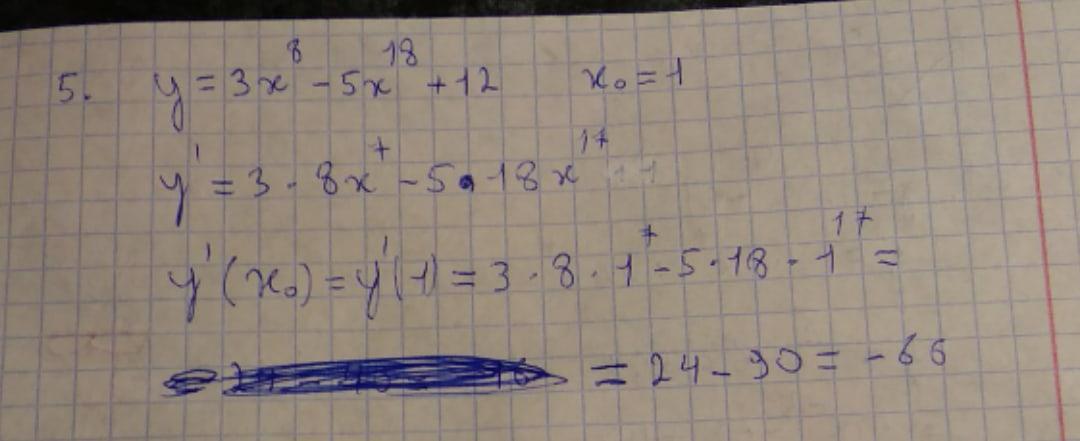 5. y = 3x⁸ - 5x¹⁸ + 12 x₀ = 1
y' = 3 · 8x⁷ - 5 · 18x¹⁷
y'(x₀) = y'(1) = 3 · 8 · 1⁷ - 5 · 18 · 1¹⁷ =
= 24 - 90 = -66